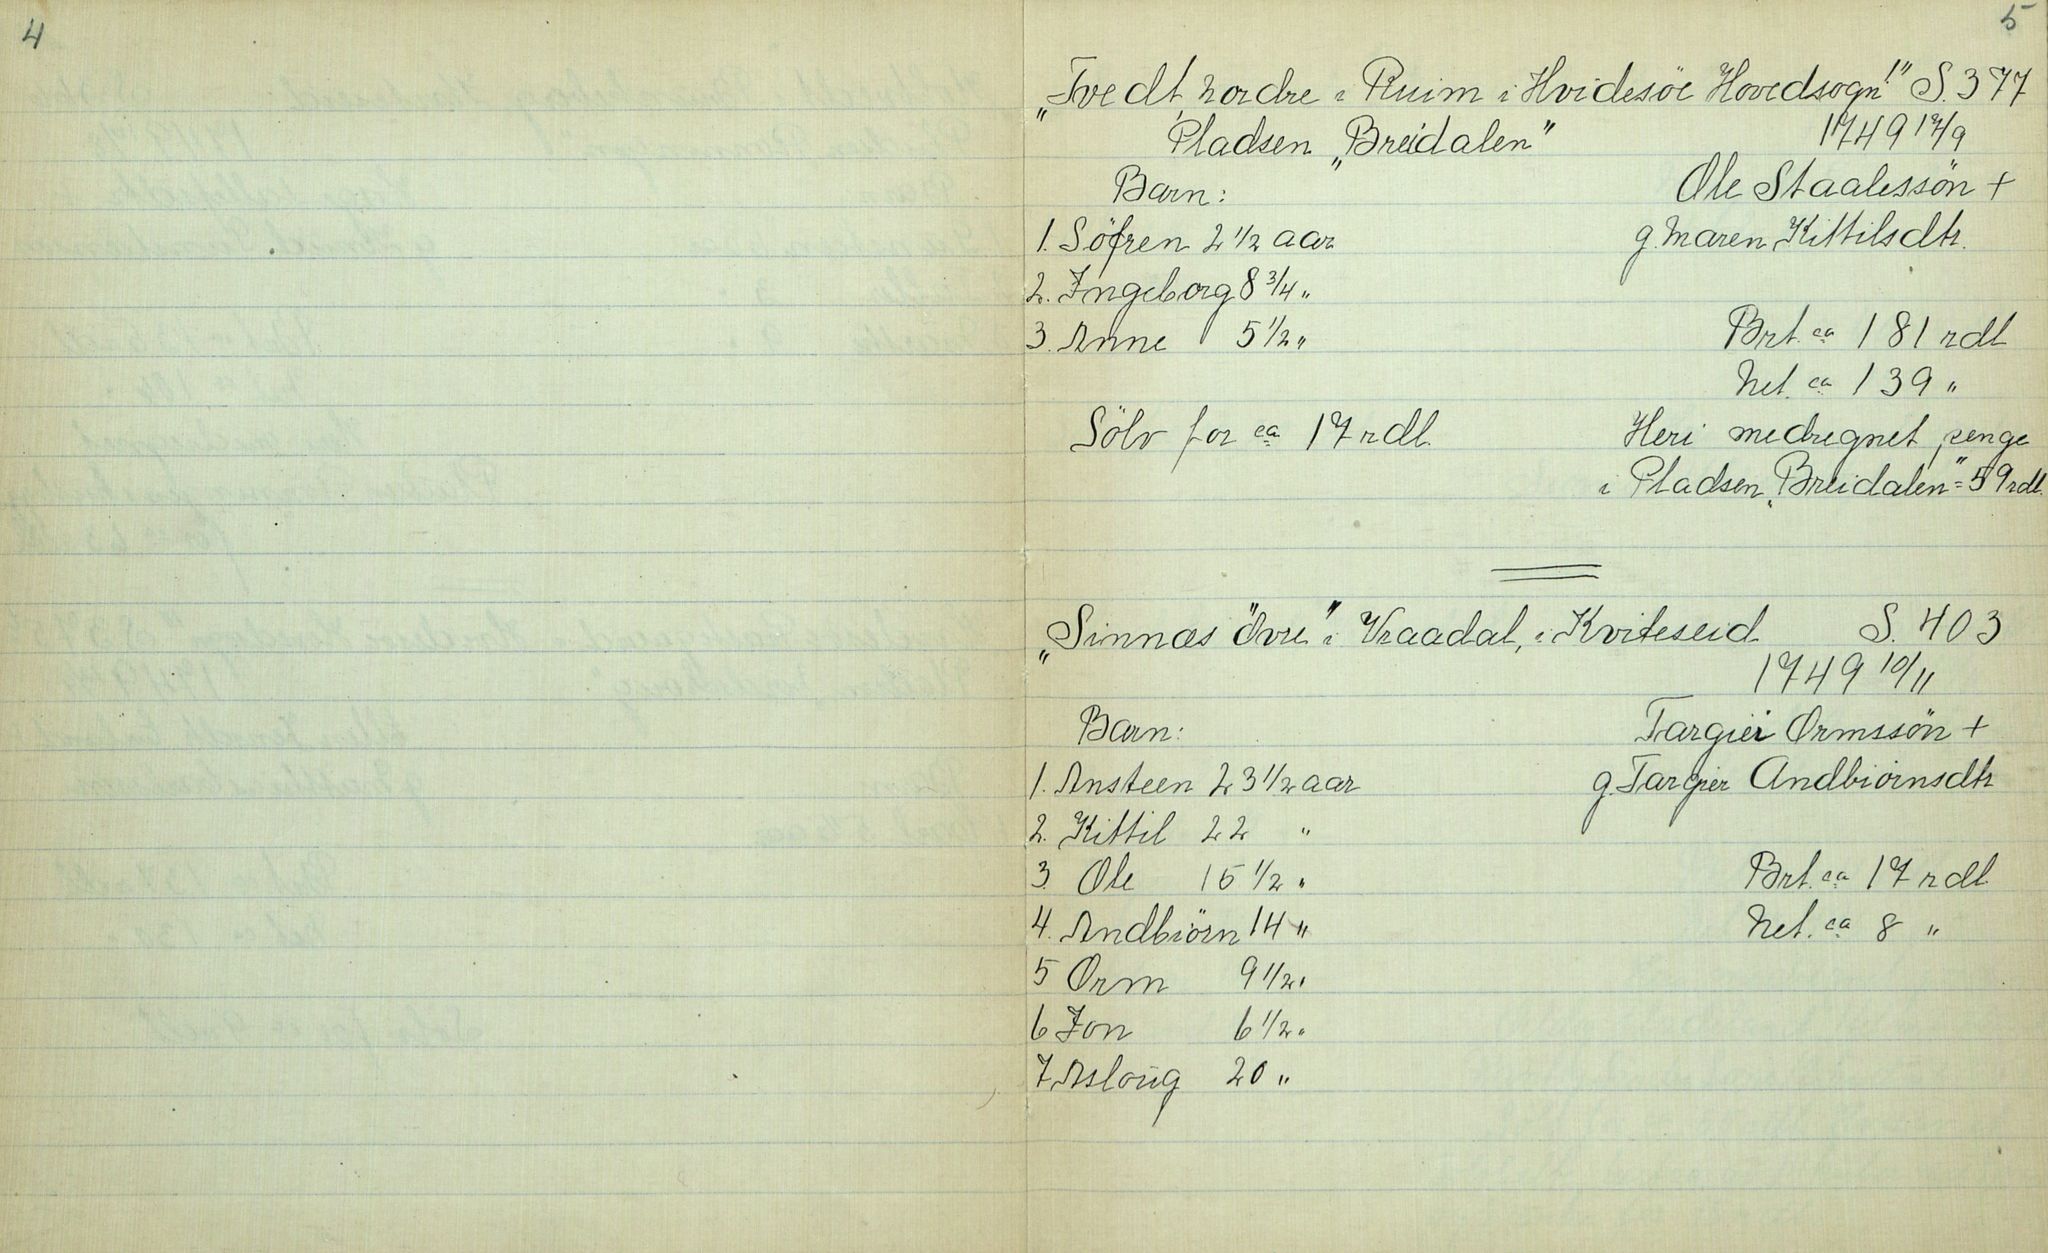 4
5
„Tvedt, nordre i Ruim i Hvidesöe Hovedsogn!" S. 377
Pladsen „Breidalen" 1749 17/9
Barn: Ole Staalessön +
1. Söfren 2 1/2 aar g. Maren Kittilsdtr.
2. Ingeborg 8 3/4 "
3. Anne 5 1/2 " Brt. ca 181 rdl
Net. ca 139 "
Sölv for ca 17 rdl. Heri medregnet penge
i Pladsen „Breidalen" = 59 rdl.
„Sinnæs övre" i Vraadal, i Kviteseid S. 403
1749 10/11
Barn: Targier Ormssön +
1. Ansteen 23 1/2 aar g. Targier Andbiörnsdtr
2. Kittil 22 "
3. Ole 15 1/2 " Brt. ca 17 rdl
4. Andbiörn 14 " Net. ca 8 "
5 Orm 9 1/2 "
6 Jon 6 1/2 "
7. Asloug 20 "